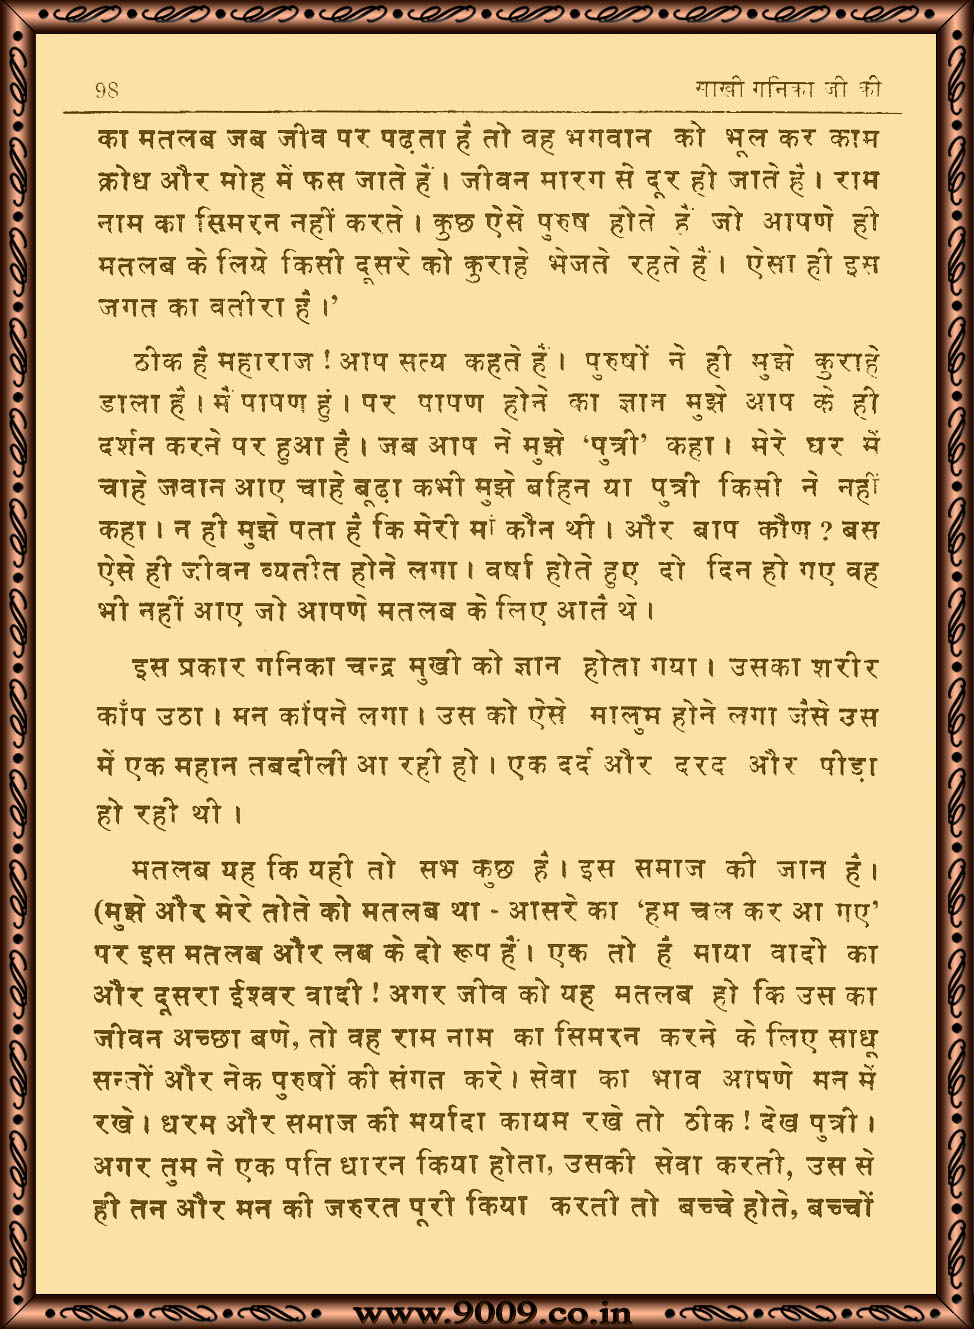 98 साखी गनिका जी की
का मतलब जब जीव पर पढ़ता है तो वह भगवान को भूल कर काम
क्रोध और मोह में फस जाते हैं। जीवन मारग से दूर हो जाते हैं। राम
नाम का सिमरन नहीं करते। कुछ ऐसे पुरुष होते हैं जो आपणे ही
मतलब के लिये किसी दूसरे को कुराहे भेजते रहते हैं। ऐसा ही इस
जगत का वतीरा है।’
ठीक है महाराज ! आप सत्य कहते हैं। पुरुषों ने ही मुझे कुराहे
डाला है। मैं पापण हुं। पर पापण होने का ज्ञान मुझे आप के ही
दर्शन करने पर हुआ है। जब आप ने मुझे ‘पुत्री’ कहा। मेरे घर में
चाहे जवान आए चाहे बूढ़ा कभी मुझे बहिन या पुत्री किसी ने नहीं
कहा। न ही मुझे पता है कि मेरी मां कौन थी। और बाप कौण ? बस
ऐसे ही जीवन व्यतीत होने लगा। वर्षा होते हुए दो दिन हो गए वह
भी नहीं आए जो आपणे मतलब के लिए आते थे।
इस प्रकार गनिका चन्द्र मुखी को ज्ञान होता गया। उसका शरीर
काँप उठा। मन कांपने लगा। उस को ऐसे मालुम होने लगा जैसे उस
में एक महान तबदीली आ रही हो। एक दर्द और दरद और पीड़ा
हो रही थी।
मतलब यह कि यही तो सभ कुछ है। इस समाज की जान है।
(मुझे और मेरे तोते को मतलब था - आसरे का ‘हम चल कर आ गए’
पर इस मतलब और लब के दो रूप हैं। एक तो है माया वादी का
और दूसरा ईश्वर वादी ! अगर जीव को यह मतलब हो कि उस का
जीवन अच्छा बणे, तो वह राम नाम का सिमरन करने के लिए साधू
सन्तों और नेक पुरुषों की संगत करे। सेवा का भाव आपणे मन में
रखे। धरम और समाज की मर्यादा कायम रखे तो ठीक ! देख पुत्री।
अगर तुम ने एक पति धारन किया होता, उसकी सेवा करती, उस से
ही तन और मन की जरुरत पूरी किया करती तो बच्चे होते, बच्चों
www.9009.co.in